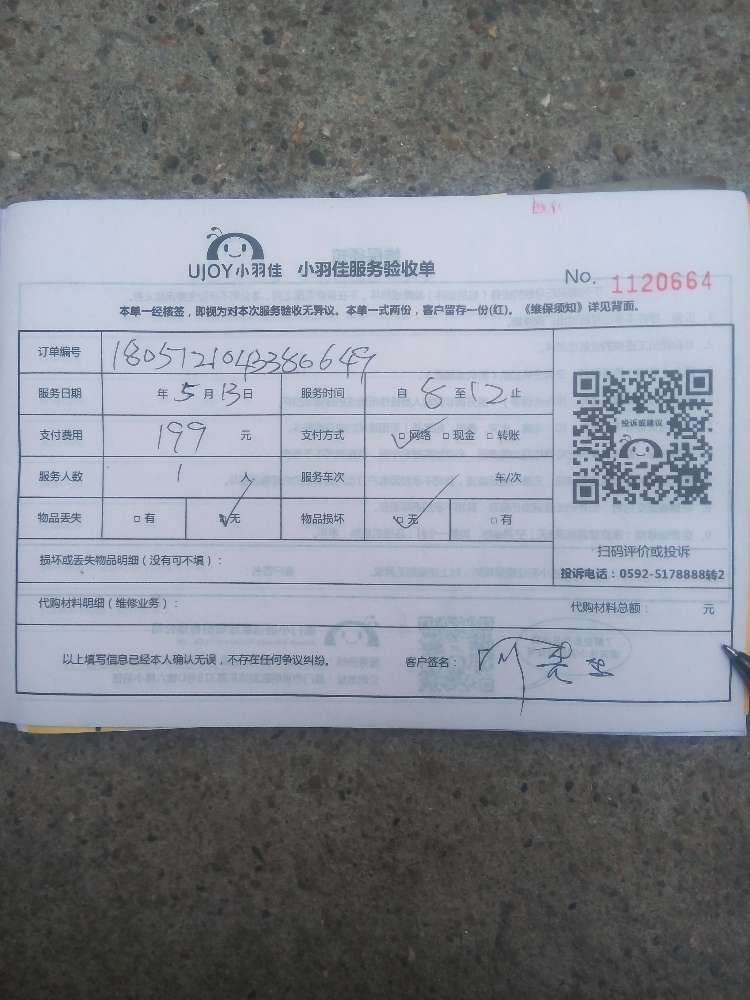 UJOY小羽佳 小羽佳服务验收单
No. 1120664
本单一经核签，即视为对本次服务验收无异议。本单一式两份，客户留存一份(红)。《维保须知》详见背面。
订单编号 1805121043386649
服务日期 年 5 月 13 日 服务时间 自 8 至 12 止
支付费用 199 元 支付方式 □网络 □现金 □转账
投诉或建议
服务人数 1 人 服务车次 车/次
物品丢失 □有 □无 物品损坏 □无 □有
扫码评价或投诉
损坏或丢失物品明细（没有可不填）：
投诉电话：0592-5178888转2
代购材料明细（维修业务）： 代购材料总额： 元
以上填写信息已经本人确认无误，不存在任何争议纠纷。 客户签名：